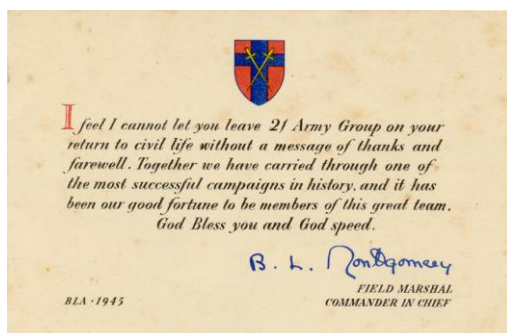 I feel I cannot let you leave 21 Army Group on your
return to civil life without a message of thanks and
farewell. Together we have carried through one of
the most successful campaigns in history, and it has
been our good fortune to be members of this great team.
God Bless you and God speed.
B. L. Montgomery
FIELD MARSHAL
COMMANDER IN CHIEF
BLA · 1945